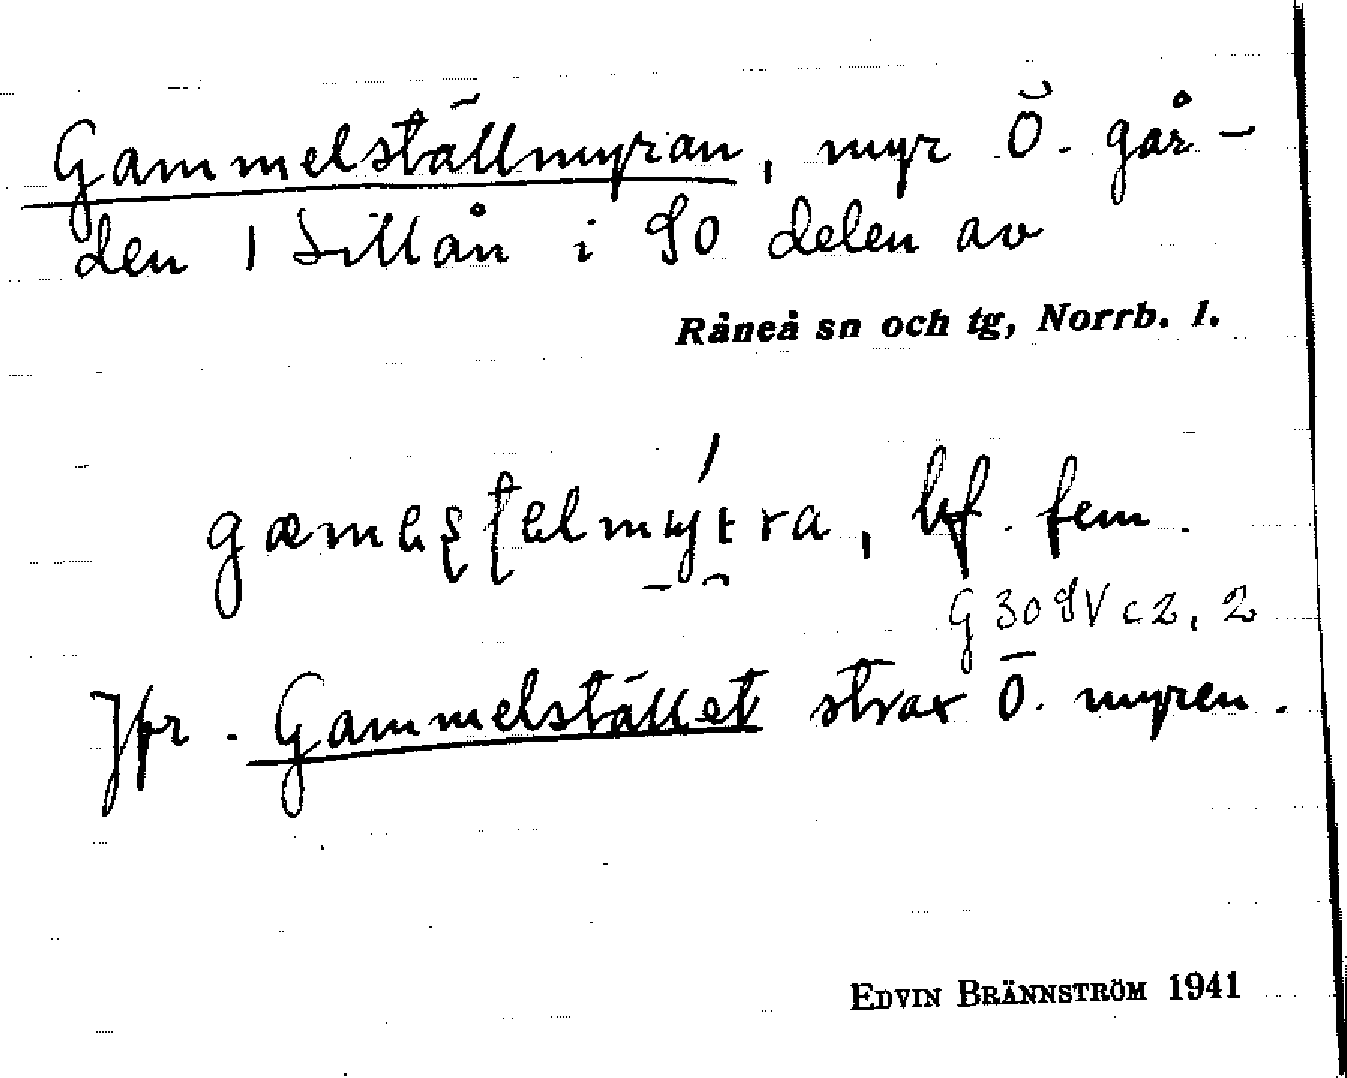 Gammelställmyran, myr Ö. går-
den 1 Lillån i SO delen av
Råneå sn och tg, Norrb. l.
bf. fem.
G 30 SV c 2, 2
Jfr. Gammelstället strax Ö. myren.
EDVIN BRÄNNSTRÖM 1941